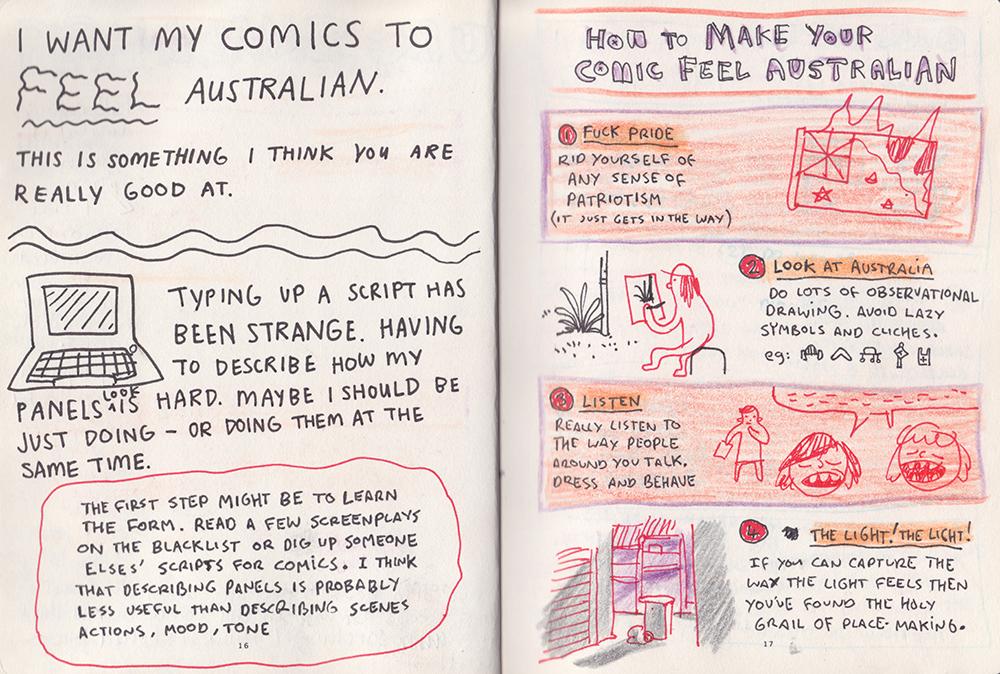 I WANT MY COMICS TO
FEEL AUSTRALIAN.
THIS IS SOMETHING I THINK YOU ARE
REALLY GOOD AT.
TYPING UP A SCRIPT HAS
BEEN STRANGE. HAVING
TO DESCRIBE HOW MY
PANELS LOOK IS HARD. MAYBE I SHOULD BE
JUST DOING - OR DOING THEM AT THE
SAME TIME.
THE FIRST STEP MIGHT BE TO LEARN
THE FORM. READ A FEW SCREENPLAYS
ON THE BLACKLIST OR DIG UP SOMEONE
ELSES' SCRIPTS FOR COMICS. I THINK
THAT DESCRIBING PANELS IS PROBABLY
LESS USEFUL THAN DESCRIBING SCENES
ACTIONS, MOOD, TONE
16
HOW TO MAKE YOUR
COMIC FEEL AUSTRALIAN
1 FUCK PRIDE
RID YOURSELF OF
ANY SENSE OF
PATRIOTISM
(IT JUST GETS IN THE WAY)
2 LOOK AT AUSTRALIA
DO LOTS OF OBSERVATIONAL
DRAWING. AVOID LAZY
SYMBOLS AND CLICHES.
eg:
3 LISTEN
REALLY LISTEN TO
THE WAY PEOPLE
AROUND YOU TALK,
DRESS AND BEHAVE
4 THE LIGHT! THE LIGHT!
IF YOU CAN CAPTURE THE
WAY THE LIGHT FEELS THEN
YOU'VE FOUND THE HOLY
GRAIL OF PLACE-MAKING.
17